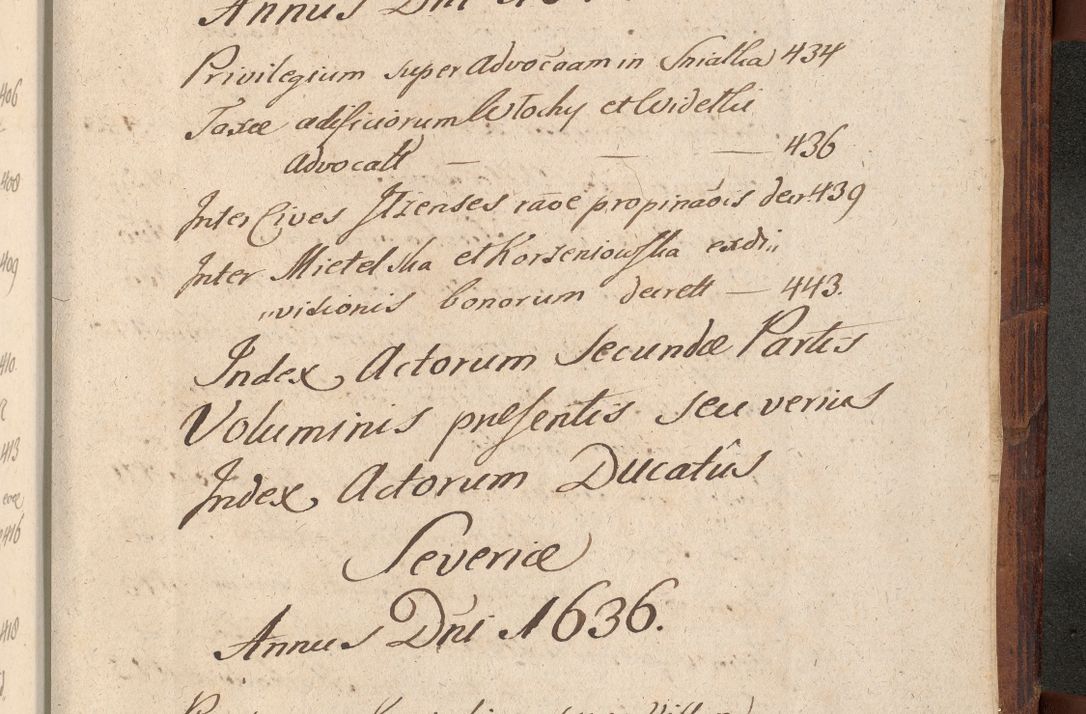 Annus Dni
Privilegium super Advocãam in 434
Taxæ ædificiorum Wlochy et
Advocatt — — — 436
Inter Cives Ilzenses raõe propinaõis decr. 439
Inter Mietelska et Korzeniowska exdi„
„visionis bonorum decrett — 443.
Index Actorum Secundæ Partis
Voluminis præsentis seu verius
Index Actorum Ducatûs
Severiæ
Annus Dni 1636.
406
408
409
410.
413
416
418